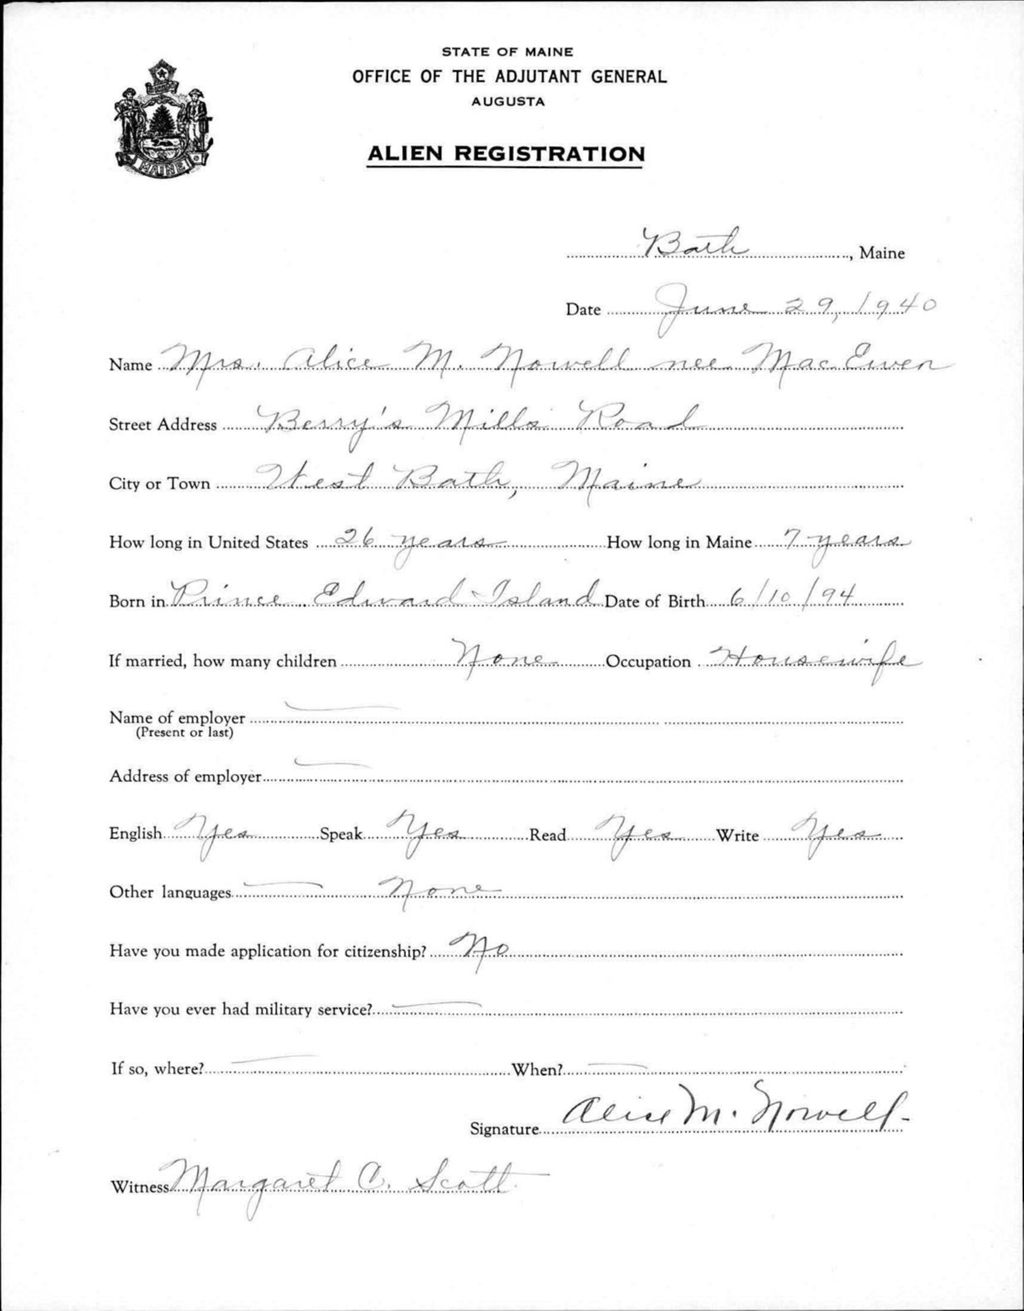 STATE OF MAINE
OFFICE OF THE ADJUTANT GENERAL
AUGUSTA
ALIEN REGISTRATION
MAINE
Bath, Maine
Date June 29, 1940
Name Mrs. Alice M. Nowell nee MacEwen
Street Address Berry's Mills Road
City or Town West Bath, Maine
How long in United States 26 years How long in Maine 7 years
Born in Prince Edward Island Date of Birth 6/10/94
If married, how many children None Occupation Housewife
Name of employer
(Present or last)
Address of employer
English Yes Speak Yes Read Yes Write Yes
Other languages None
Have you made application for citizenship? No
Have you ever had military service?
If so, where? When?
Signature Alice M. Nowell
Witness Margaret C. Scott